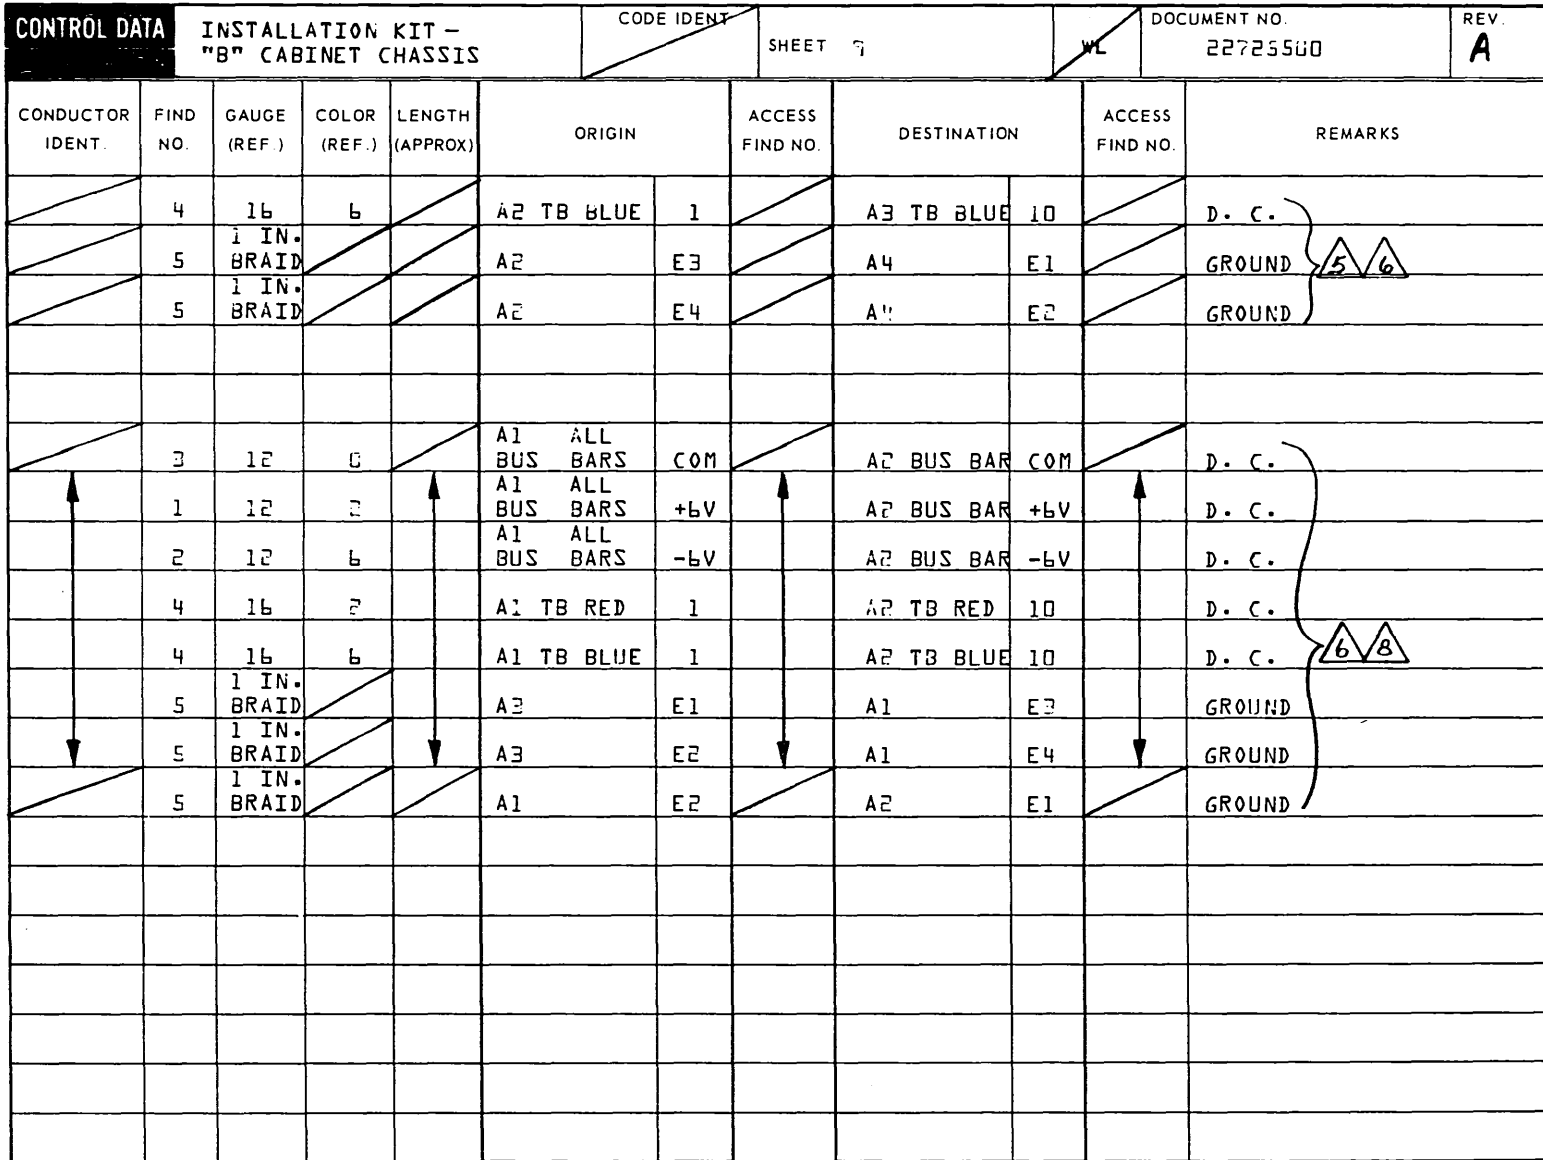 CONTROL DATA
INSTALLATION KIT -
"B" CABINET CHASSIS
CODE IDENT
SHEET 9
WL
DOCUMENT NO.
22725500
REV.
A
CONDUCTOR IDENT. FIND NO. GAUGE (REF.) COLOR (REF.) LENGTH (APPROX) ORIGIN ACCESS FIND NO. DESTINATION ACCESS FIND NO. REMARKS
4 16 6 A2 TB BLUE 1 A3 TB BLUE 10 D. C.
5 1 IN. BRAID A2 E3 A4 E1 GROUND 5 6
5 1 IN. BRAID A2 E4 A4 E2 GROUND
3 12 0 A1 ALL BUS BARS COM A2 BUS BAR COM D. C.
1 12 2 A1 ALL BUS BARS +6V A2 BUS BAR +6V D. C.
2 12 6 A1 ALL BUS BARS -6V A2 BUS BAR -6V D. C.
4 16 2 A1 TB RED 1 A2 TB RED 10 D. C.
4 16 6 A1 TB BLUE 1 A2 TB BLUE 10 D. C. 6 8
5 1 IN. BRAID A3 E1 A1 E3 GROUND
5 1 IN. BRAID A3 E2 A1 E4 GROUND
5 1 IN. BRAID A1 E2 A2 E1 GROUND